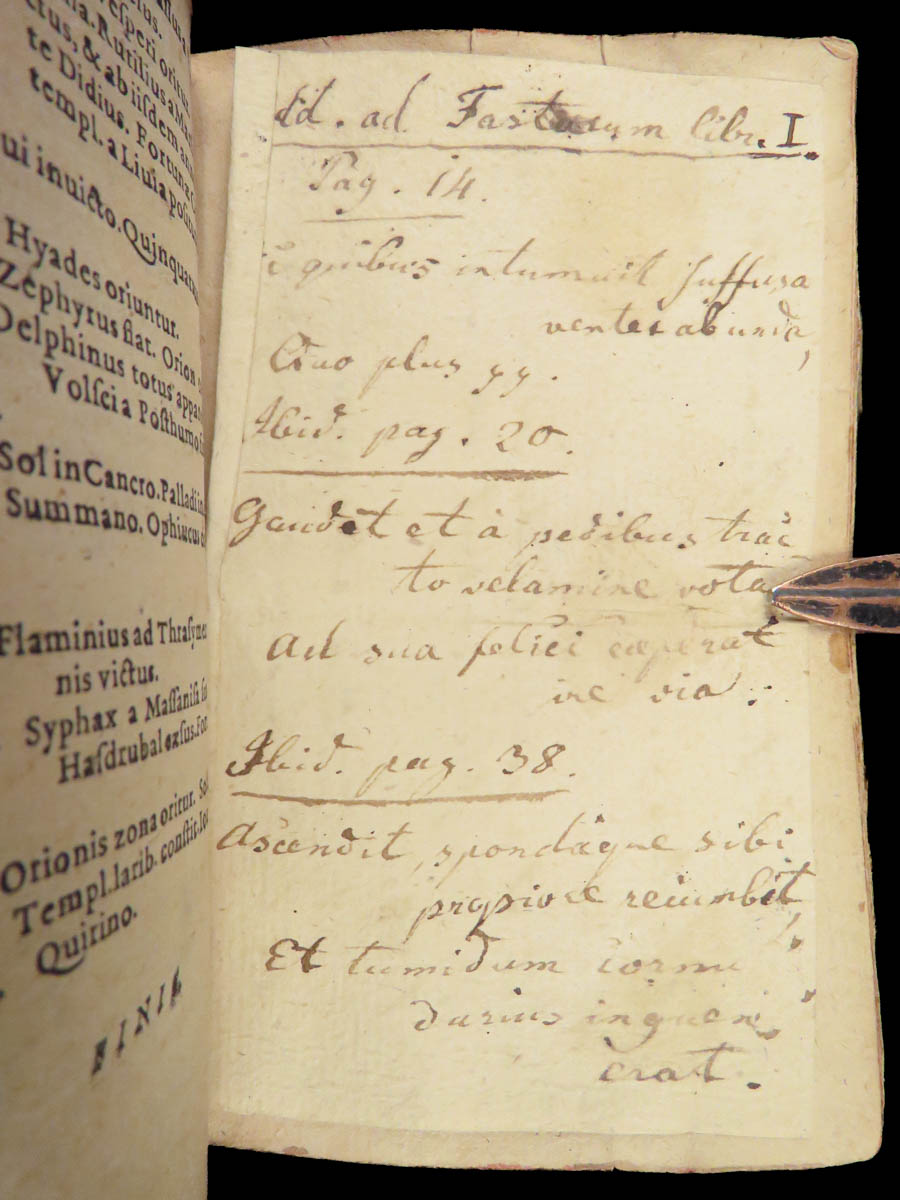 Vesperi oritur.
Rutilius a
ctus, & ab iisdem
te Didius. Fortuna
templ. a Liuia
ui inuicto. Quinquatrus
Hyades oriuntur.
Zephyrus flat. Orion
Delphinus totus
Volſci a Poſthumo
Sol in Cancro. Palladi
Summano. Ophiucus
Flaminius ad
nis victus.
Syphax a Maſſaniſſa
Haſdrubal exſus.
Orionis zona oritur.
Templ. larib. conſtit.
Quirino.
FINIS
ad Fastorum libr. I.
Pag. 14.
è quibus intumuit ſuffusa
venter ab unda,
plus
Ibid. pag. 20.
Gaudet et à pedibus trac
to velamine vota
Ad sua felici cæperat
ire via.
Ibid. pag. 38.
Ascendit, spondâque sibi
propiore recumbit,
Et tumidum cornu
durius inguen
erat.